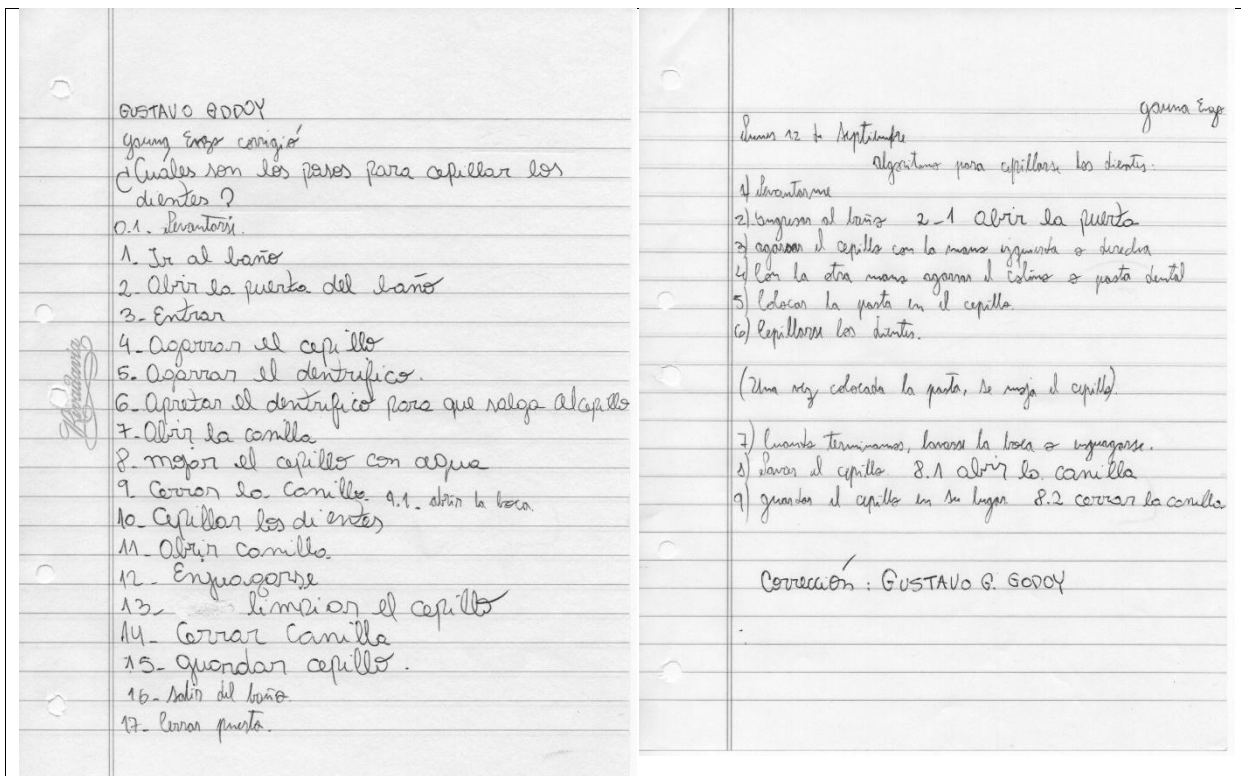 GUSTAVO GODOY
Gauna Enzo corrigió
¿Cuáles son los pasos para cepillar los
dientes?
0.1. Levantarse.
1. Ir al baño
2. Abrir la puerta del baño
3- Entrar
4- Agarrar el cepillo
5. Agarrar el dentrífico.
6- apretar el dentrífico para que salga al cepillo
7- Abrir la canilla
8. mojar el cepillo con agua
9. Cerrar la Canilla. 9.1. abrir la boca.
10- Cepillar los dientes
11- Abrir canilla.
12- Enjuagarse
13- limpiar el cepillo
14- Cerrar Canilla
15- guardar cepillo.
16- salir del baño.
17- Cerrar puerta.
Rivadavia
Gauna Enzo
Lunes 12 de Septiembre
Algoritmo para cepillarse los dientes.
1) Levantarme
2) Ingresar al baño 2-1 abrir la puerta
3) agarrar el cepillo con la mano izquierda o derecha
4) Con la otra mano agarrar el colino o pasta dental
5) Colocar la pasta en el cepillo.
6) Cepillarse los dientes.
(Una vez colocada la pasta, se moja el cepillo).
7) Cuando terminamos, lavarse la boca o enjuagarse.
8) Lavar el cepillo. 8.1 abrir la canilla
9) guardar el cepillo en su lugar. 8.2 cerrar la canilla
Corrección: GUSTAVO G. GODOY